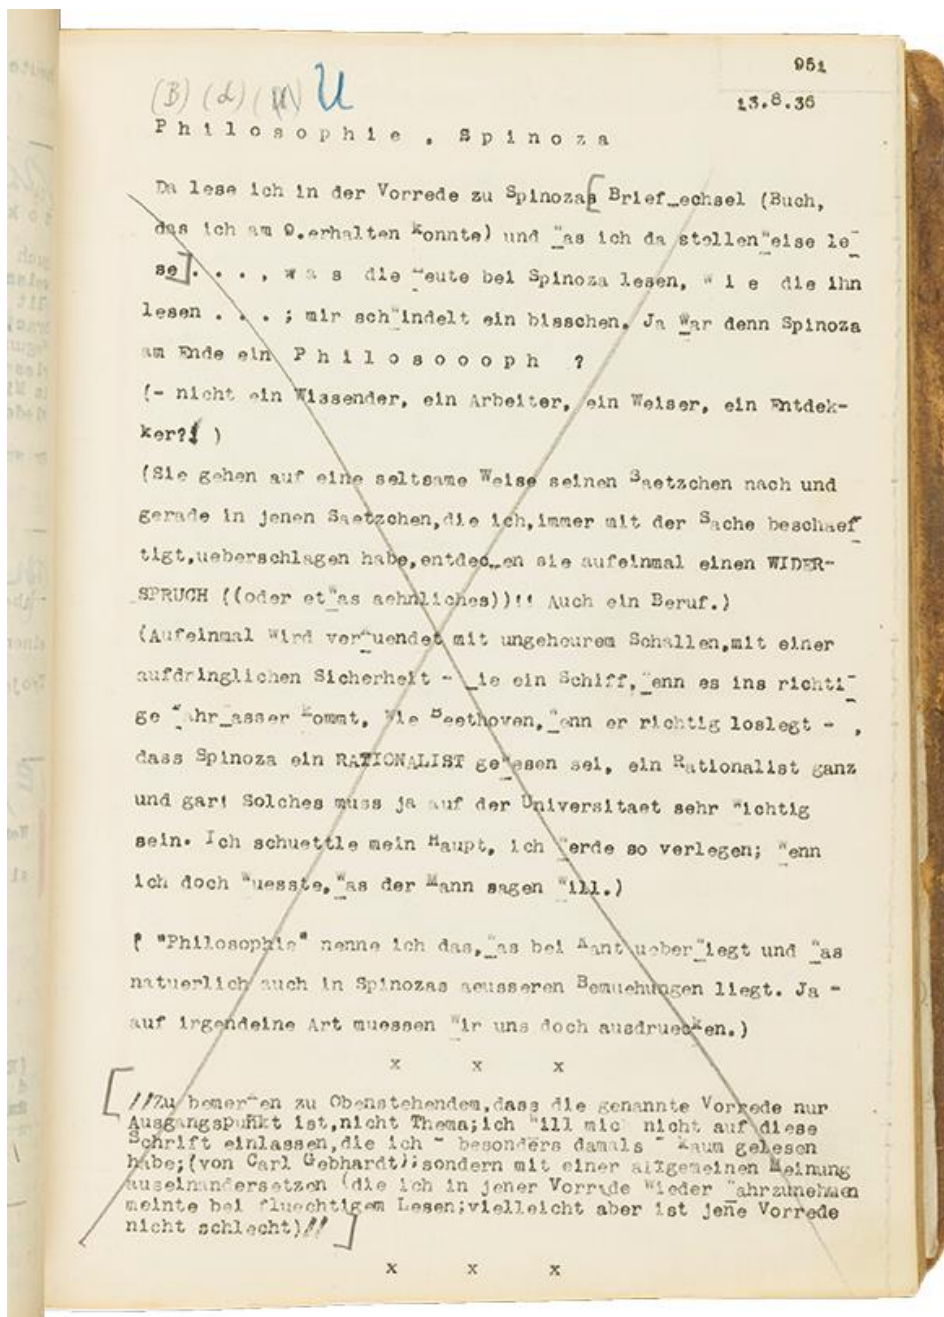 951
(B) (d) (M) U
13.8.36
Philosophie, Spinoza
Da lese ich in der Vorrede zu Spinozas [Briefwechsel (Buch,
das ich am 9.erhalten konnte) und was ich da stellenweise le-
se]. . . , was die Leute bei Spinoza lesen, wie die ihn
lesen . . . ; mir schwindelt ein bisschen. Ja war denn Spinoza
am Ende ein Philosoooph ?
(- nicht ein Wissender, ein Arbeiter, ein Weiser, ein Entdek-
ker?! )
(Sie gehen auf eine seltsame Weise seinen Saetzchen nach und
gerade in jenen Saetzchen,die ich,immer mit der Sache beschaef
tigt,ueberschlagen habe,entdecken sie aufeinmal einen WIDER-
SPRUCH ((oder etwas aehnliches))!! Auch ein Beruf.)
(Aufeinmal wird verkuendet mit ungeheurem Schallen,mit einer
aufdringlichen Sicherheit - wie ein Schiff, wenn es ins richti-
ge Fahrwasser kommt, wie Beethoven, wenn er richtig loslegt - ,
dass Spinoza ein RATIONALIST gewesen sei, ein Rationalist ganz
und gar! Solches muss ja auf der Universitaet sehr wichtig
sein. Ich schuettle mein Haupt, ich werde so verlegen; wenn
ich doch wuesste, was der Mann sagen will.)
( "Philosophie" nenne ich das, was bei Kant ueberwiegt und was
natuerlich auch in Spinozas aeusseren Bemuehungen liegt. Ja -
auf irgendeine Art muessen wir uns doch ausdruecken.)
x x x
[//Zu bemerken zu Obenstehendem,dass die genannte Vorrede nur
Ausgangspunkt ist,nicht Thema;ich will mich nicht auf diese
Schrift einlassen,die ich - besonders damals - kaum gelesen
habe;(von Carl Gebhardt);sondern mit einer allgemeinen Meinung
auseinandersetzen (die ich in jener Vorrede wieder wahrzunehmen
meinte bei fluechtigem Lesen;vielleicht aber ist jene Vorrede
nicht schlecht)//]
x x x